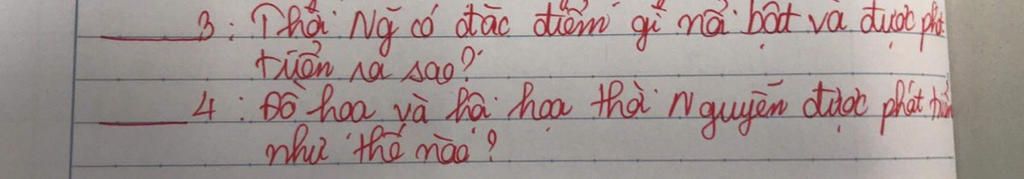 3: Thời Ng~ có đặc điểm gì nổi bật và được phát
triển ra sao?
4: Đồ họa và hội họa thời Nguyễn được phát triển
như thế nào?